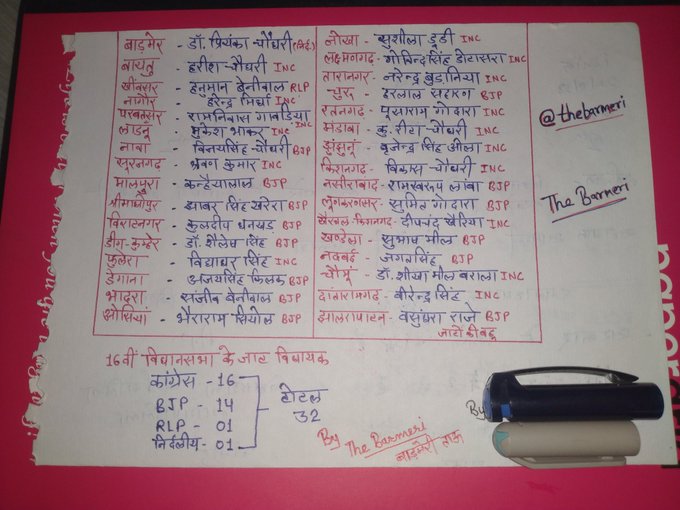 बाड़मेर - डॉ. प्रियंका चौधरी (निर्द.)
बायतु - हरीश चौधरी INC
खींवसर - हनुमान बेनीवाल RLP
नागौर - हरेन्द्र मिर्धा INC
परबतसर - रामनिवास गावड़िया INC
लाडनूं - मुकेश भाकर INC
नावा - विजयसिंह चौधरी BJP
सूरजगढ़ - श्रवण कुमार INC
मालपुरा - कन्हैयालाल BJP
श्रीमाधोपुर - झाबर सिंह खर्रा BJP
विराटनगर - कुलदीप धनखड़ BJP
डीग-कुम्हेर - डॉ. शैलेष सिंह BJP
फुलेरा - विद्याधर सिंह INC
डेगाना - अजयसिंह किलक BJP
भादरा - संजीव बेनीवाल BJP
ओसियां - भैराराम सियोल BJP
नोखा - सुशीला डूडी INC
लक्ष्मणगढ़ - गोविन्दसिंह डोटासरा INC
तारानगर - नरेन्द्र बुडानिया INC
चुरू - हरलाल सहारण BJP
रतनगढ़ - पूसाराम गोदारा INC
मंडावा - कु. रीटा चौधरी INC
झुंझुनूं - बृजेन्द्र सिंह ओला INC
किशनगढ़ - विकास चौधरी INC
नसीराबाद - रामस्वरूप लांबा BJP
लूणकरणसर - सुमित गोदारा BJP
खैरथल-किशनगढ़ - दीपचंद खेरिया INC
खण्डेला - सुभाष मील BJP
नदबई - जगतसिंह BJP
चौमूं - डॉ. शीखा मील बराला INC
दांतारामगढ़ - वीरेन्द्र सिंह INC
झालरापाटन - वसुंधरा राजे BJP
जाटों की बहू
16वीं विधानसभा के जाट विधायक
कांग्रेस - 16
BJP - 14
RLP - 01
निर्दलीय - 01
टोटल
32
By
The Barmeri
@thebarmeri
The Barmeri
By